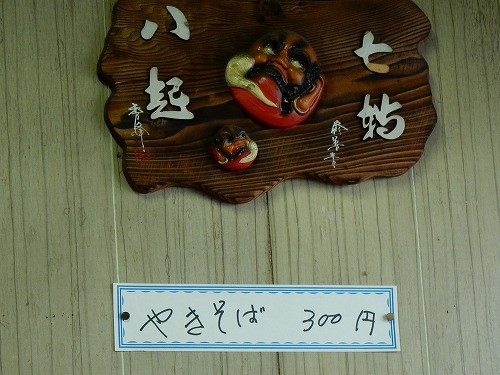 七転
八起
やきそば 300円